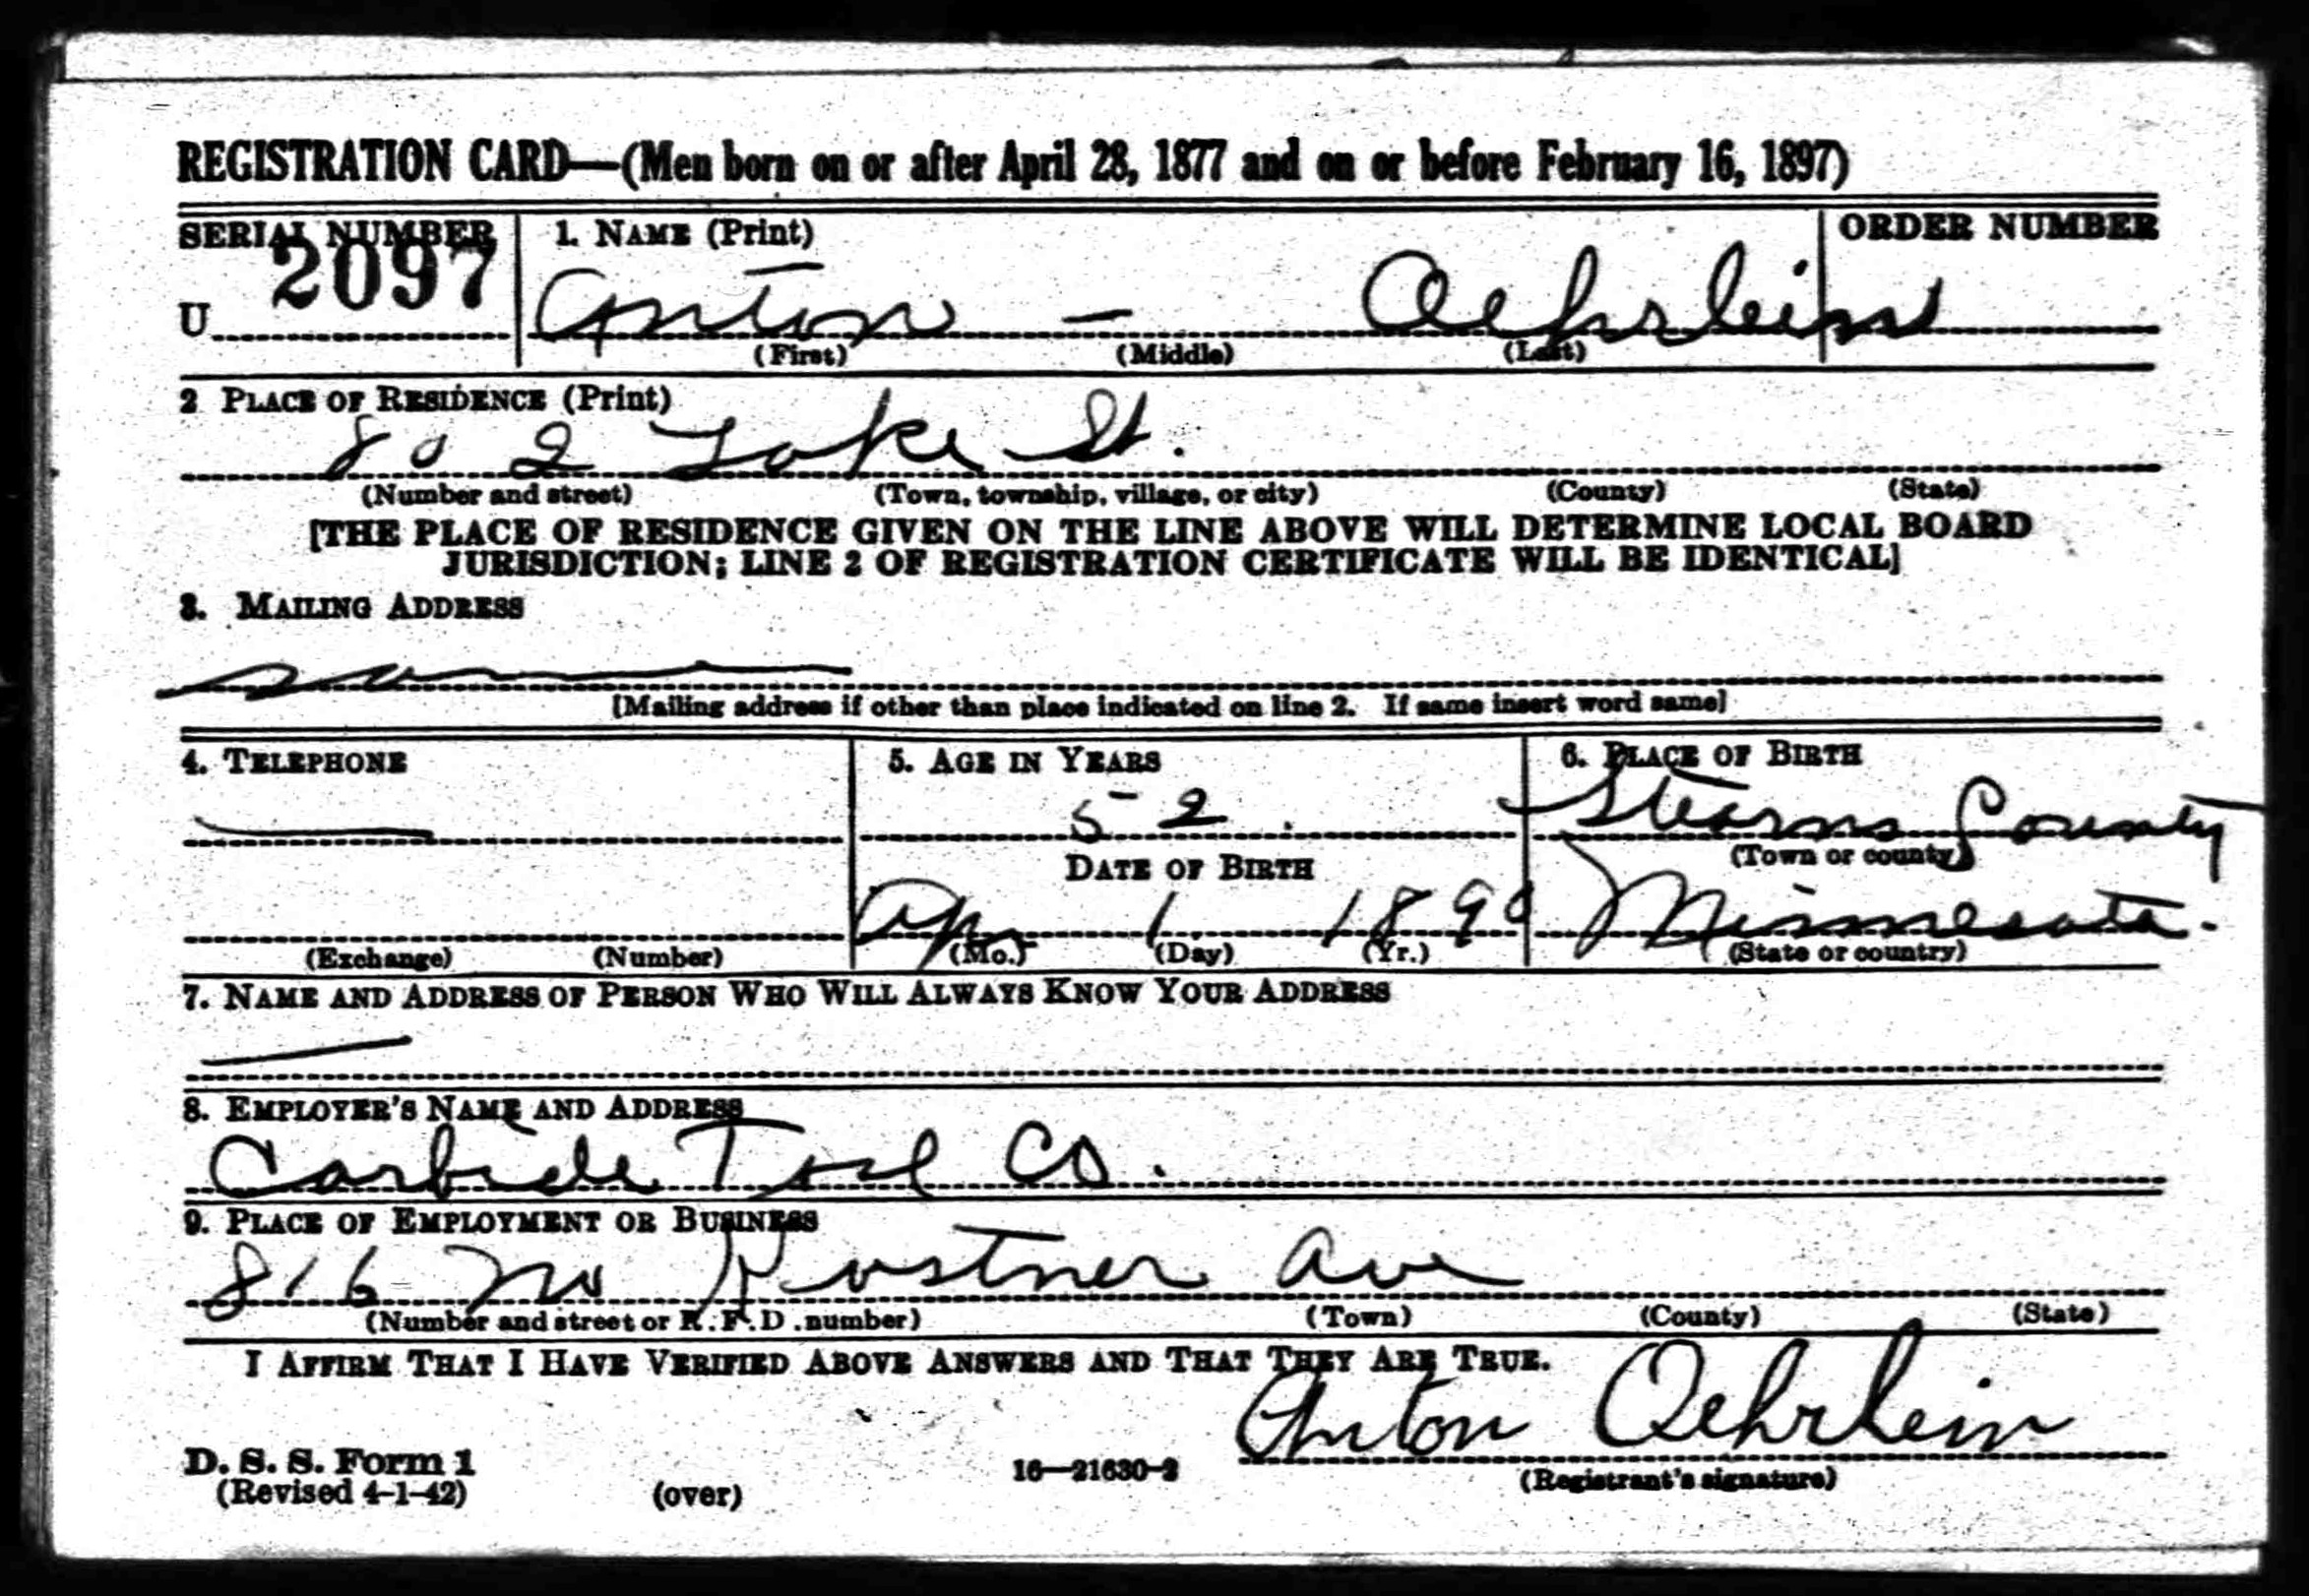 REGISTRATION CARD—(Men born on or after April 28, 1877 and on or before February 16, 1897)
SERIAL NUMBER 1. NAME (Print) ORDER NUMBER
U 2097 Anton — Oehrlein
(First) (Middle) (Last)
2 PLACE OF RESIDENCE (Print)
802 Lake St.
(Number and street) (Town, township, village, or city) (County) (State)
[THE PLACE OF RESIDENCE GIVEN ON THE LINE ABOVE WILL DETERMINE LOCAL BOARD
JURISDICTION; LINE 2 OF REGISTRATION CERTIFICATE WILL BE IDENTICAL]
3. MAILING ADDRESS
same
[Mailing address if other than place indicated on line 2. If same insert word same]
4. TELEPHONE 5. AGE IN YEARS 6. PLACE OF BIRTH
— 52 Stearns County
DATE OF BIRTH (Town or county)
Apr 1 1890 Minnesota.
(Exchange) (Number) (Mo.) (Day) (Yr.) (State or country)
7. NAME AND ADDRESS OF PERSON WHO WILL ALWAYS KNOW YOUR ADDRESS
—
8. EMPLOYER'S NAME AND ADDRESS
Carbide Tool Co.
9. PLACE OF EMPLOYMENT OR BUSINESS
816 No Kostner Ave
(Number and street or R.F.D. number) (Town) (County) (State)
I AFFIRM THAT I HAVE VERIFIED ABOVE ANSWERS AND THAT THEY ARE TRUE.
Anton Oehrlein
D. S. S. Form 1
(Revised 4-1-42) (over) 16—21630-2 (Registrant's signature)